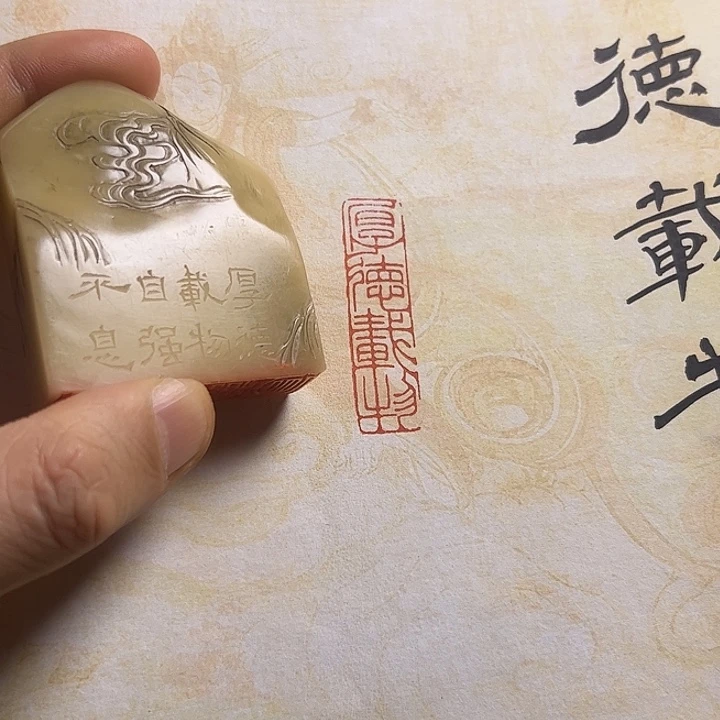 德載
厚德載物
厚德
載物
自强
不息